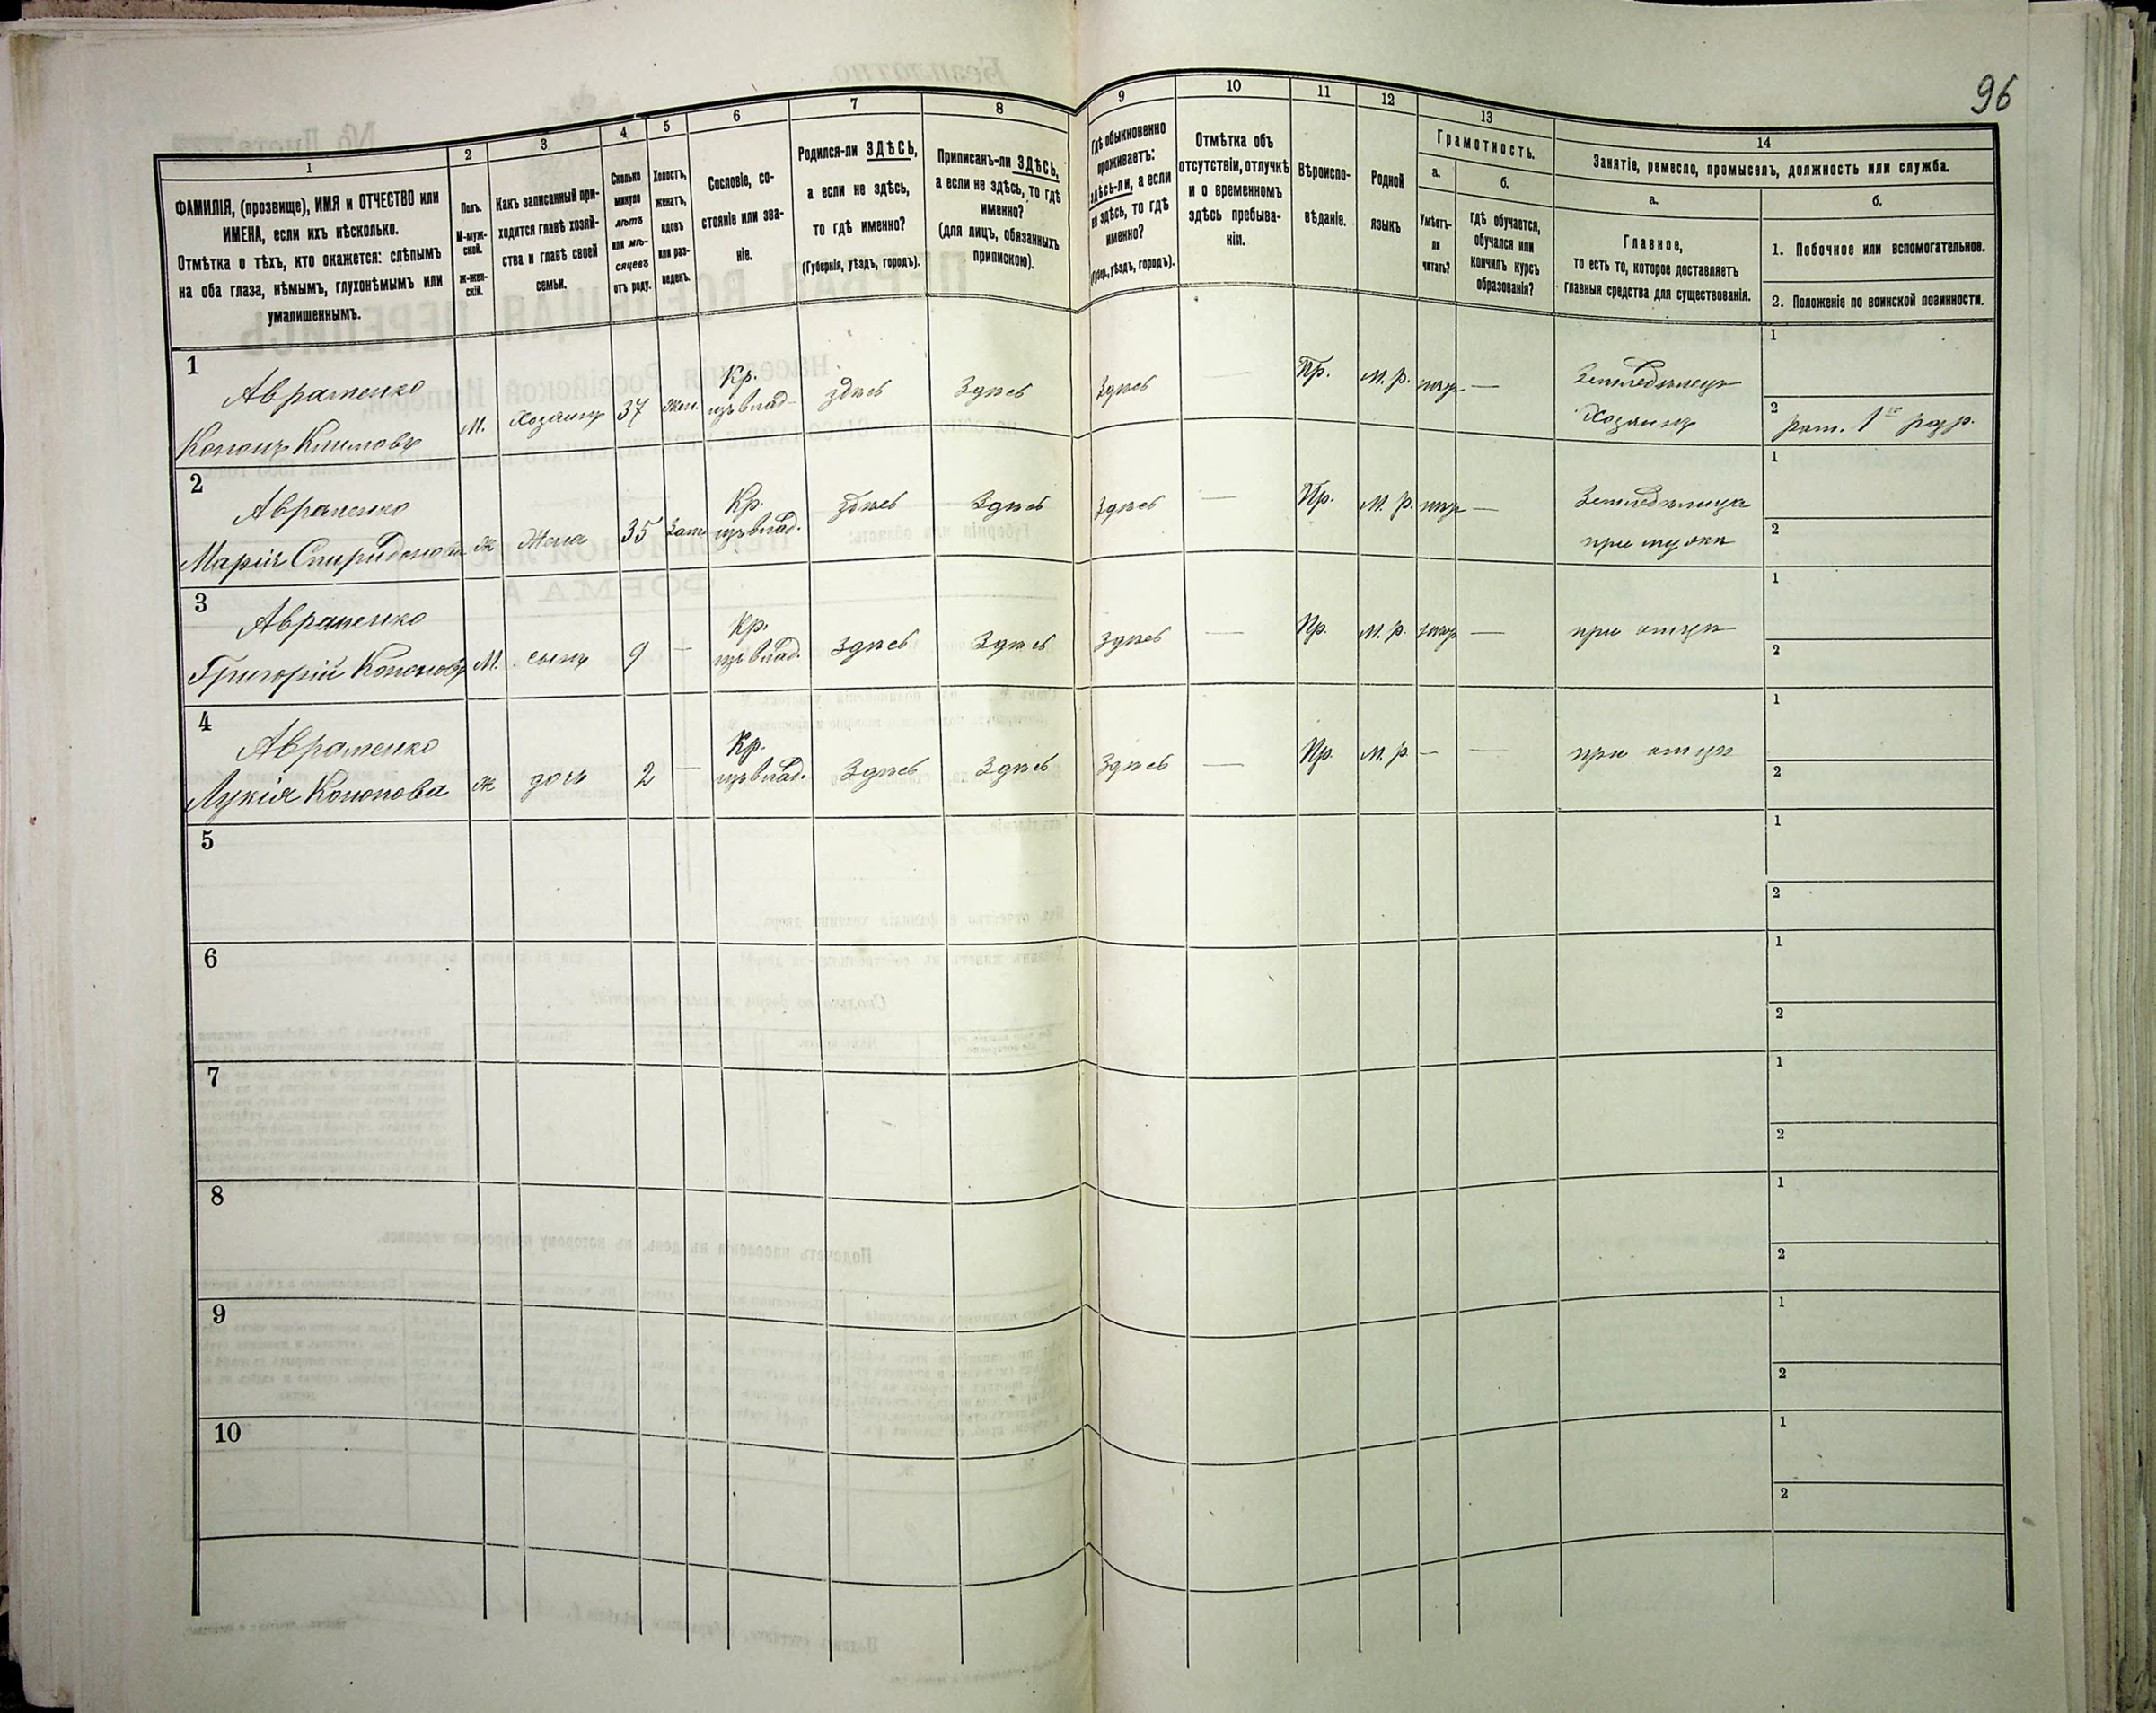 96
1
2
3
4
5
6
7
8
9
10
11
12
13
14
ФАМИЛІЯ, (прозвище), ИМЯ и ОТЧЕСТВО или
ИМЕНА, если ихъ нѣсколько.
Отмѣтка о тѣхъ, кто окажется: слѣпымъ
на оба глаза, нѣмымъ, глухонѣмымъ или
умалишеннымъ.
Полъ.
М-муж-
ской.
Ж-жен-
скій.
Какъ записанный при-
ходится главѣ хозяй-
ства и главѣ своей
семьи.
Сколько
минуло
лѣтъ
или мѣ-
сяцевъ
отъ роду.
Холостъ,
женатъ,
вдовъ
или раз-
веденъ.
Сословіе, со-
стояніе или зва-
ніе.
Родился-ли ЗДѢСЬ,
а если не здѣсь,
то гдѣ именно?
(Губернія, уѣздъ, городъ).
Приписанъ-ли ЗДѢСЬ,
а если не здѣсь, то гдѣ
именно?
(для лицъ, обязанныхъ
припискою).
Гдѣ обыкновенно
проживаетъ:
здѣсь-ли, а если
не здѣсь, то гдѣ
именно?
(Губер., уѣздъ, городъ).
Отмѣтка объ
отсутствіи, отлучкѣ
и о временномъ
здѣсь пребыва-
ніи.
Вѣроиспо-
вѣданіе.
Родной
языкъ
Грамотность.
а.
Умѣетъ-
ли
читать?
б.
гдѣ обучается,
обучался или
кончилъ курсъ
образованія?
Занятіе, ремесло, промыселъ, должность или служба.
а.
Главное,
то есть то, которое доставляетъ
главныя средства для существованія.
б.
1. Побочное или вспомогательное.
2. Положеніе по воинской повинности.
1
Авраменко
Кононъ Климовъ
М.
Хозяинъ
37
Жен.
Кр.
изъ влад.
здѣсь
Здѣсь
Здѣсь
—
Пр.
М. р.
нѣтъ
—
Земледѣлецъ
Хозяинъ
1
2
рат. 1го разр.
2
Авраменко
Марія Спиридонова
Ж
Жена
35
Зам.
Кр.
изъ влад.
здѣсь
Здѣсь
Здѣсь
—
Пр.
М. р.
нѣтъ
—
Земледѣлица
при мужѣ
1
2
3
Авраменко
Григорій Кононовъ
М.
сынъ
9
—
Кр.
изъ влад.
Здѣсь
Здѣсь
Здѣсь
—
Пр.
М. р.
нѣтъ
—
при отцѣ
1
2
4
Авраменко
Лукія Кононова
Ж
дочь
2
—
Кр.
изъ влад.
Здѣсь
Здѣсь
Здѣсь
—
Пр.
М. р
—
—
при отцѣ
1
2
5
1
2
6
1
2
7
1
2
8
1
2
9
1
2
10
1
2